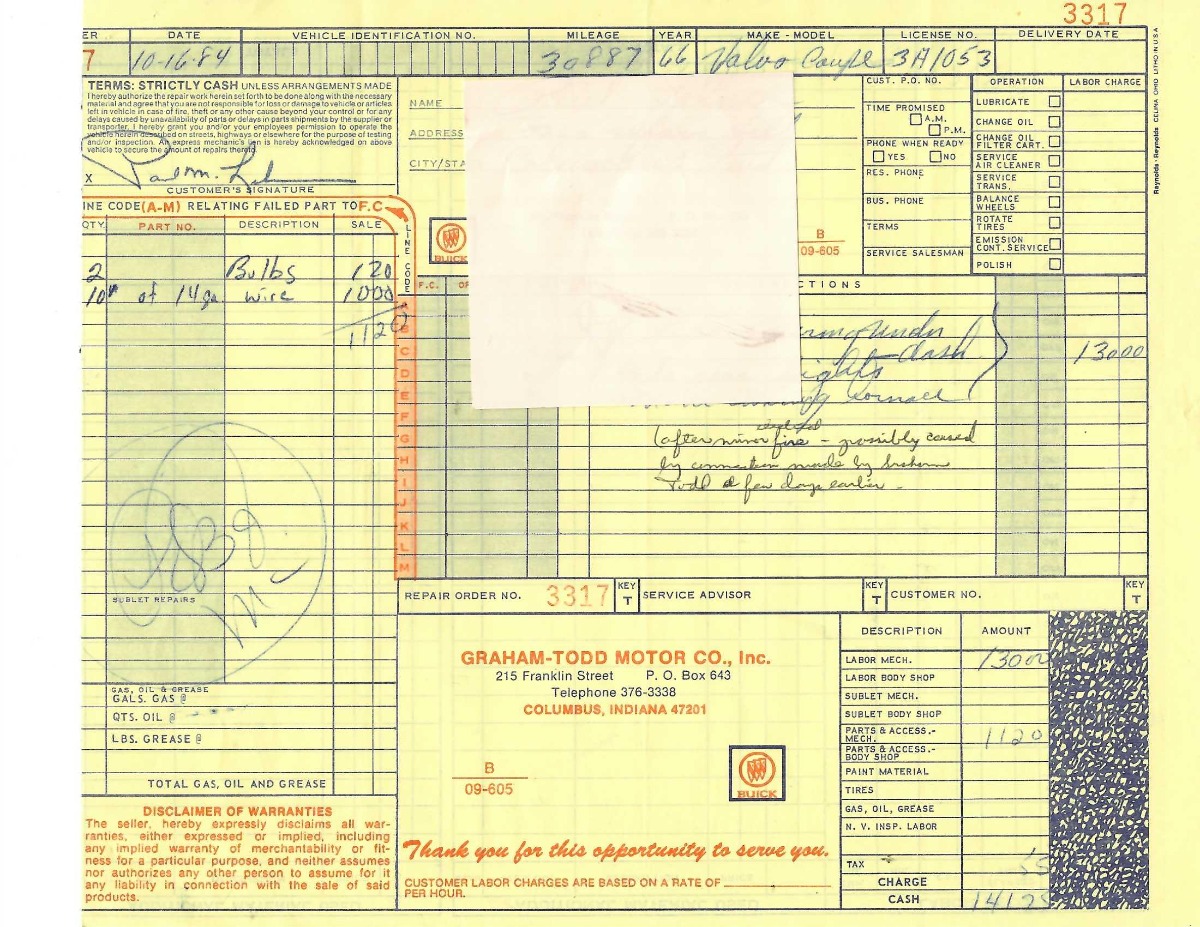 3317
ER DATE VEHICLE IDENTIFICATION NO. MILEAGE YEAR MAKE - MODEL LICENSE NO. DELIVERY DATE
7 10-16-84 30887 66 Volvo Coupe 3A1053
TERMS: STRICTLY CASH UNLESS ARRANGEMENTS MADE
I hereby authorize the repair work herein set forth to be done along with the necessary
material and agree that you are not responsible for loss or damage to vehicle or articles
left in vehicle in case of fire, theft or any other cause beyond your control or for any
delays caused by unavailability of parts or delays in parts shipments by the supplier or
transporter. I hereby grant you and/or your employees permission to operate the
vehicle herein described on streets, highways or elsewhere for the purpose of testing
and/or inspection. An express mechanic's lien is hereby acknowledged on above
vehicle to secure the amount of repairs thereto.
X
CUSTOMER'S SIGNATURE
NAME
ADDRESS
CITY/STA
BUICK
B
09-605
CUST. P.O. NO.
TIME PROMISED
A.M.
P.M.
PHONE WHEN READY
YES NO
RES. PHONE
BUS. PHONE
TERMS
SERVICE SALESMAN
OPERATION LABOR CHARGE
LUBRICATE
CHANGE OIL
CHANGE OIL
FILTER CART.
SERVICE
AIR CLEANER
SERVICE
TRANS.
BALANCE
WHEELS
ROTATE
TIRES
EMISSION
CONT. SERVICE
POLISH
INE CODE (A-M) RELATING FAILED PART TO F.C
QTY. PART NO. DESCRIPTION SALE
2 Bulbs 1 20
10' of 14 ga. wire 10 00
11 20
LINE CODE
F.C. OP
CTIONS
B
C
D
E
F
G
H
I
J
K
L
M
under
dash 130 00
ights
(after minor electrical fire - possibly caused
by connection made by Graham
Todd a few days earlier -
SUBLET REPAIRS
GAS, OIL & GREASE
GALS. GAS @
QTS. OIL @
LBS. GREASE @
TOTAL GAS, OIL AND GREASE
DISCLAIMER OF WARRANTIES
The seller, hereby expressly disclaims all war-
ranties, either expressed or implied, including
any implied warranty of merchantability or fit-
ness for a particular purpose, and neither assumes
nor authorizes any other person to assume for it
any liability in connection with the sale of said
products.
REPAIR ORDER NO. 3317 KEY T SERVICE ADVISOR KEY T CUSTOMER NO. KEY T
GRAHAM-TODD MOTOR CO., Inc.
215 Franklin Street P. O. Box 643
Telephone 376-3338
COLUMBUS, INDIANA 47201
B
09-605
BUICK
Thank you for this opportunity to serve you.
CUSTOMER LABOR CHARGES ARE BASED ON A RATE OF
PER HOUR.
DESCRIPTION AMOUNT
LABOR MECH. 130 00
LABOR BODY SHOP
SUBLET MECH.
SUBLET BODY SHOP
PARTS & ACCESS.-
MECH. 11 20
PARTS & ACCESS.-
BODY SHOP
PAINT MATERIAL
TIRES
GAS, OIL, GREASE
N. V. INSP. LABOR
TAX 55
CHARGE
CASH 141 25
Reynolds + Reynolds CELINA, OHIO LITHO IN USA